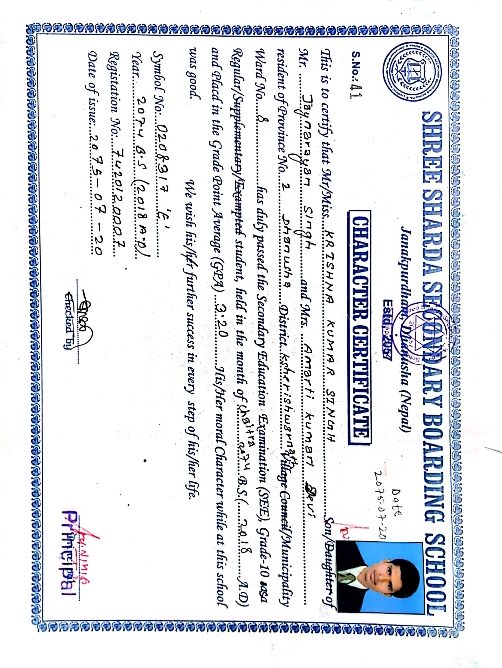 SHREE SHARDA SECONDARY BOARDING SCHOOL
Janakpurdham, Dhanusha (Nepal)
Estd. 2057
Date
2075-07-20
S.No.: 41
CHARACTER CERTIFICATE
This is to certify that Mr/Miss. KRISHNA KUMAR SINGH Son/Daughter of
Mr. Jaynarayan Singh and Mrs. Amarti Kumari Devi
resident of Province No. 2 Dhanusha District. Ksherishwarnath Village Council/Municipality
Ward No. 8 has duly passed the Secondary Education Examination (SEE), Grade-10 as a
Regular/Supplementary/Exempted student, held in the month of chaitra 2074 B.S.(2018 A.D)
and Placed in the Grade Point Average (GPA) 3.20 His/Her moral Character while at this school
was good.
We wish his/her further success in every step of his/her life.
Symbol No. 0208317 'E'
Year. 2074 B.S (2018 A.D)
Registration No. 7420120007
Date of issue. 2075-07-20
Checked by
Principal